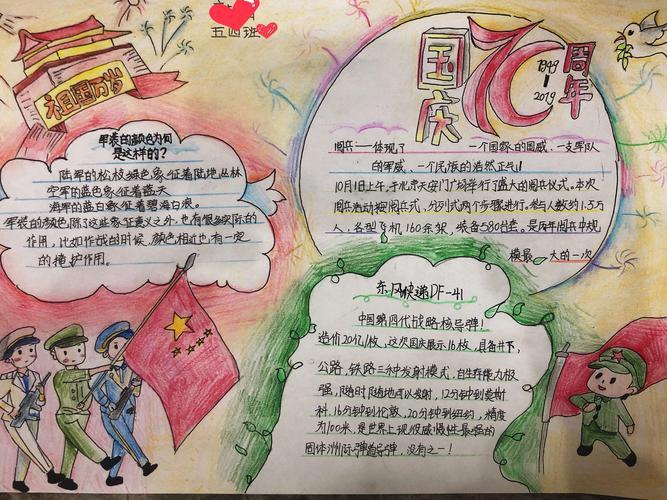 五四班
祖国万岁
国庆70周年
1949-2019
军装的颜色为何
是这样的?
陆军的松枝绿色象征着陆地丛林
空军的蓝色象征着蓝天
海军的蓝白象征着碧海白浪。
军装的颜色,除了这些象征意义之外,也有很多实际的
作用,比如作战的时候,颜色相近也有一定
的掩护作用。
阅兵——体现了 一个国家的国威、一支军队
的军威、一个民族的浩然正气!
10月1日上午,于北京天安门广场举行了盛大的阅兵仪式。本次
阅兵活动按阅兵式,分列式两个步骤进行。参与人数约1.5万
人,各型飞机160余架,装备580台套,是历年阅兵中规
模最 大的一次
东风快递DF-41
中国第四代战略核导弹!
造价20亿/枚,这次国庆展示16枚,具备井下,
公路,铁路三种发射模式,自生存能力极
强,随时随地可以发射,12分钟到莫斯
科,16分钟到伦敦,20分钟到纽约,精度
为100米,是世界上现役威慑性最强的
固体洲际弹道导弹,没有之一!